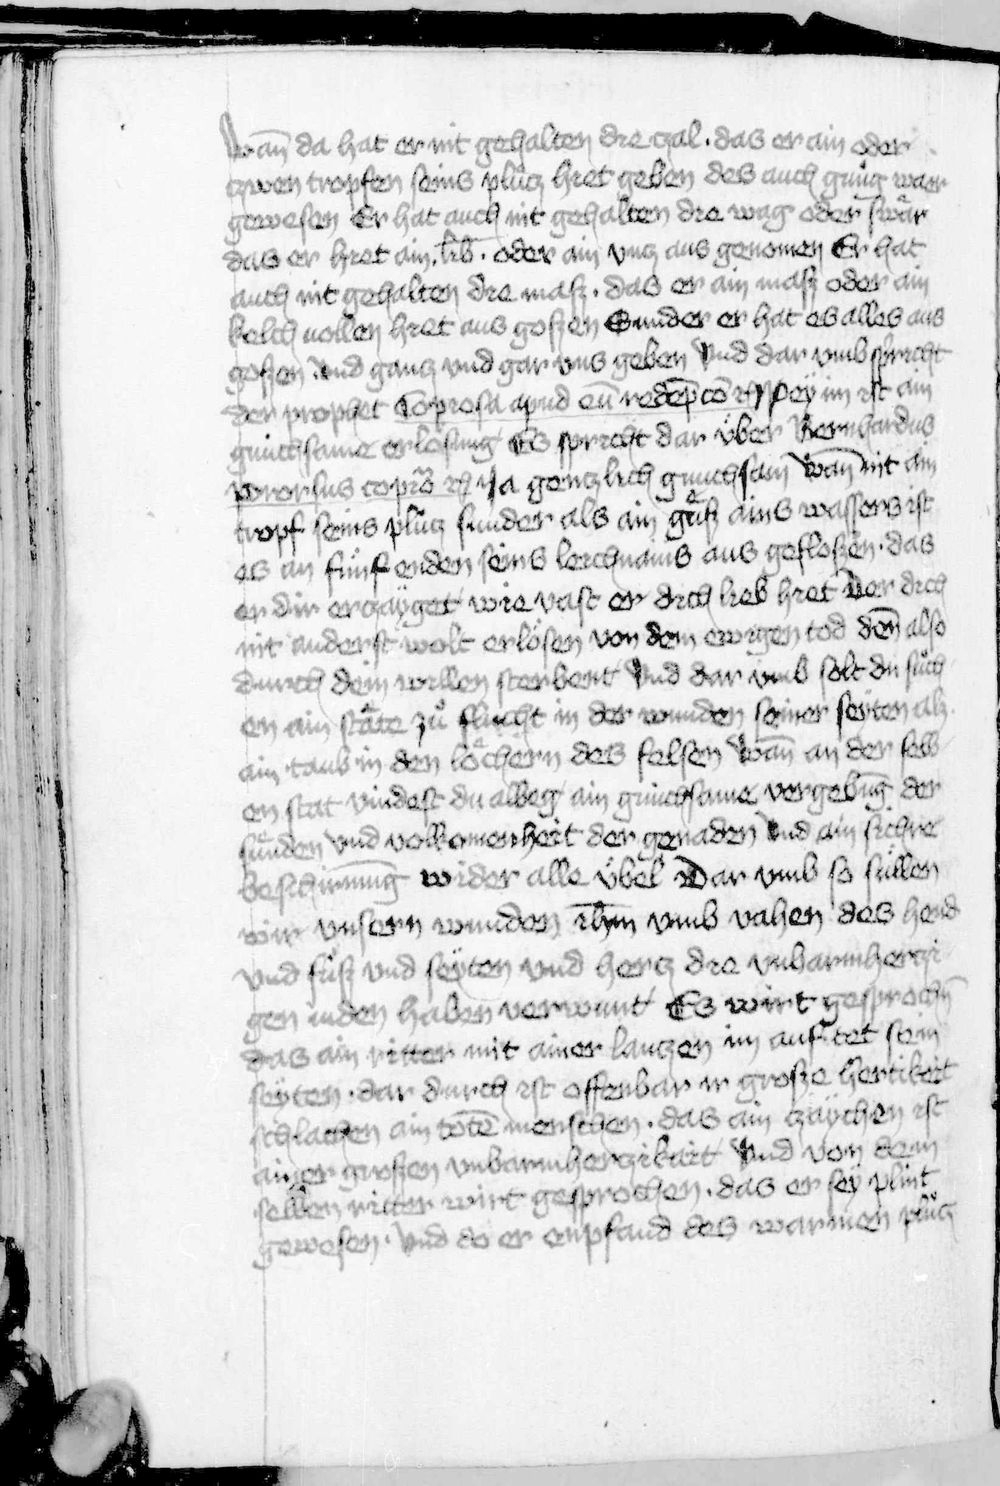 Wan̄ da hat er nit gehalten die zal · das er ain oder
tzwen tropfen seins plůtz hiet geben des auch gnůg waer
gewesen Er hat auch nit gehalten die wag oder swår
das er hiet ain .lib̄ . oder ain vntz aus genomen Er hat
auch nit gehalten die masz . das er ain masz oder ain
kelch vollen hiet aus goszen Sunder er hat es alles aus
goszen . vnd gantz vnd gar vns geben Vnd dar vmb spricht
der prophet Copiosa apud eū redēpcō rc̄ Pey im ist ain
gnuchsame erlosung Es spricht dar über Bernhardus
prorsus copiō rc̄ Ja gentzlich gnuchsam Wan̄ nit ain
tropf seins plůtz sunder als ain gůsz ains wassers ist
es an fünf enden seins leichnams aus geflossen · das
er dir ertzayget wie vast er dich lieb hiet Der dich
nit anderst wolt erlösen von dem ewigen tod den̄ also
durch dein willen sterbent Vnd dar vmb solt du sůch
en ain ståte zů flucht in der wunden seiner seyten als
ain taub in den löchern des felsen Wan̄ an der selb
en stat vindest du allweg ain gnuchsame vergebūg der
sünden vnd volkomenheit der genaden Vnd ain sichre
beschirmūg wider alle übel Dar vmb so süllen
wir vnsern wunden ih̄m vmb vahen des hend
vnd füsz vnd seyten vnd hertz die vnbarmhertzi
gen iuden haben verwunt Es wirt gesprochn̄
das ain ritter mit ainer lantzen im auf tet sein
seyten · dar durch ist offenbar ir grosze hertikeit
schlachen ain totē menschen · das ain tzaychen ist
ainer groszen vnbarmhertzikait Vnd von dem
selben ritter wirt gesprochen · das er sey plint
gewesen · vnd do er enpfand des warmen plůtz